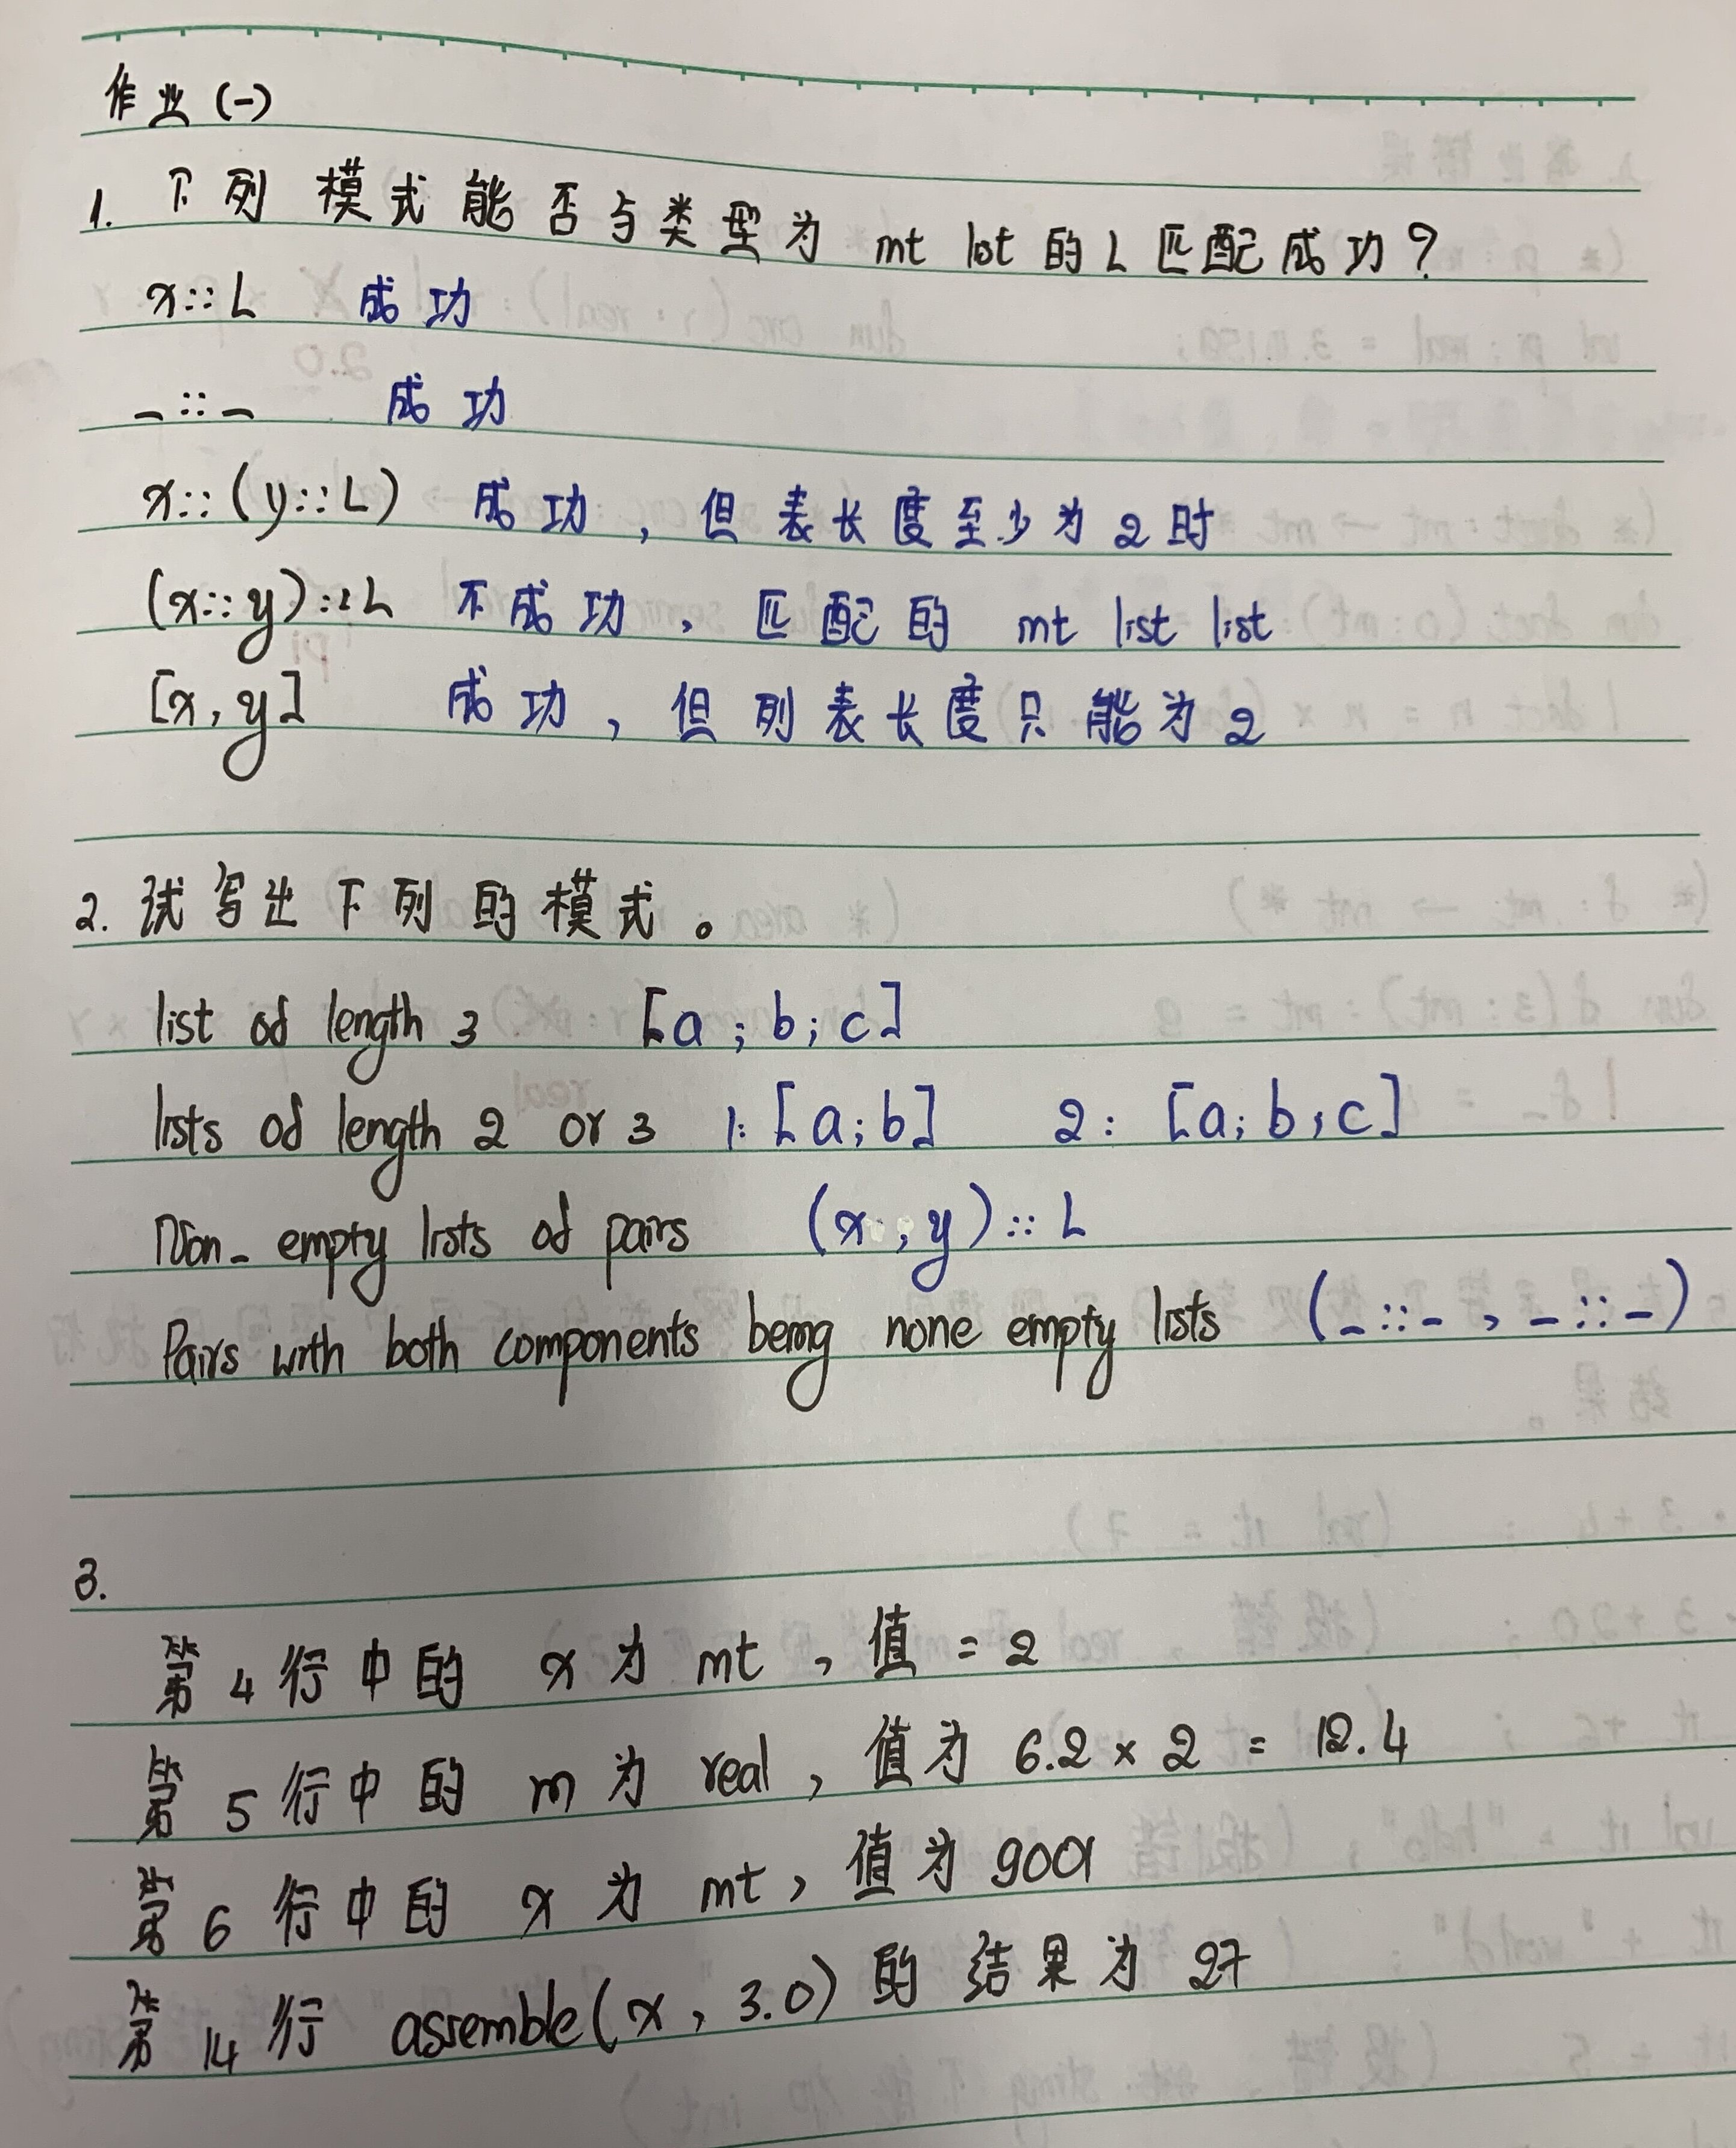 作业 (一)
1. 下列 模式能否与类型为 int list 的 L 匹配成功?
x::L 成功
_::_ 成功
x::(y::L) 成功,但表长度至少为2时
(x::y)::L 不成功,匹配的 int list list
[x,y] 成功,但列表长度只能为2
2. 试写出下列的模式。
list of length 3 [a;b;c]
lists of length 2 or 3 1: [a;b] 2: [a;b;c]
Non-empty lists of pairs (x,y)::L
Pairs with both components being none empty lists (_::_ , _::_)
3.
第4行中的 x 为 int,值=2
第5行中的 m 为 real,值为 6.2×2 = 12.4
第6行中的 x 为 int,值为 9001
第14行 assemble(x, 3.0) 的结果为 27